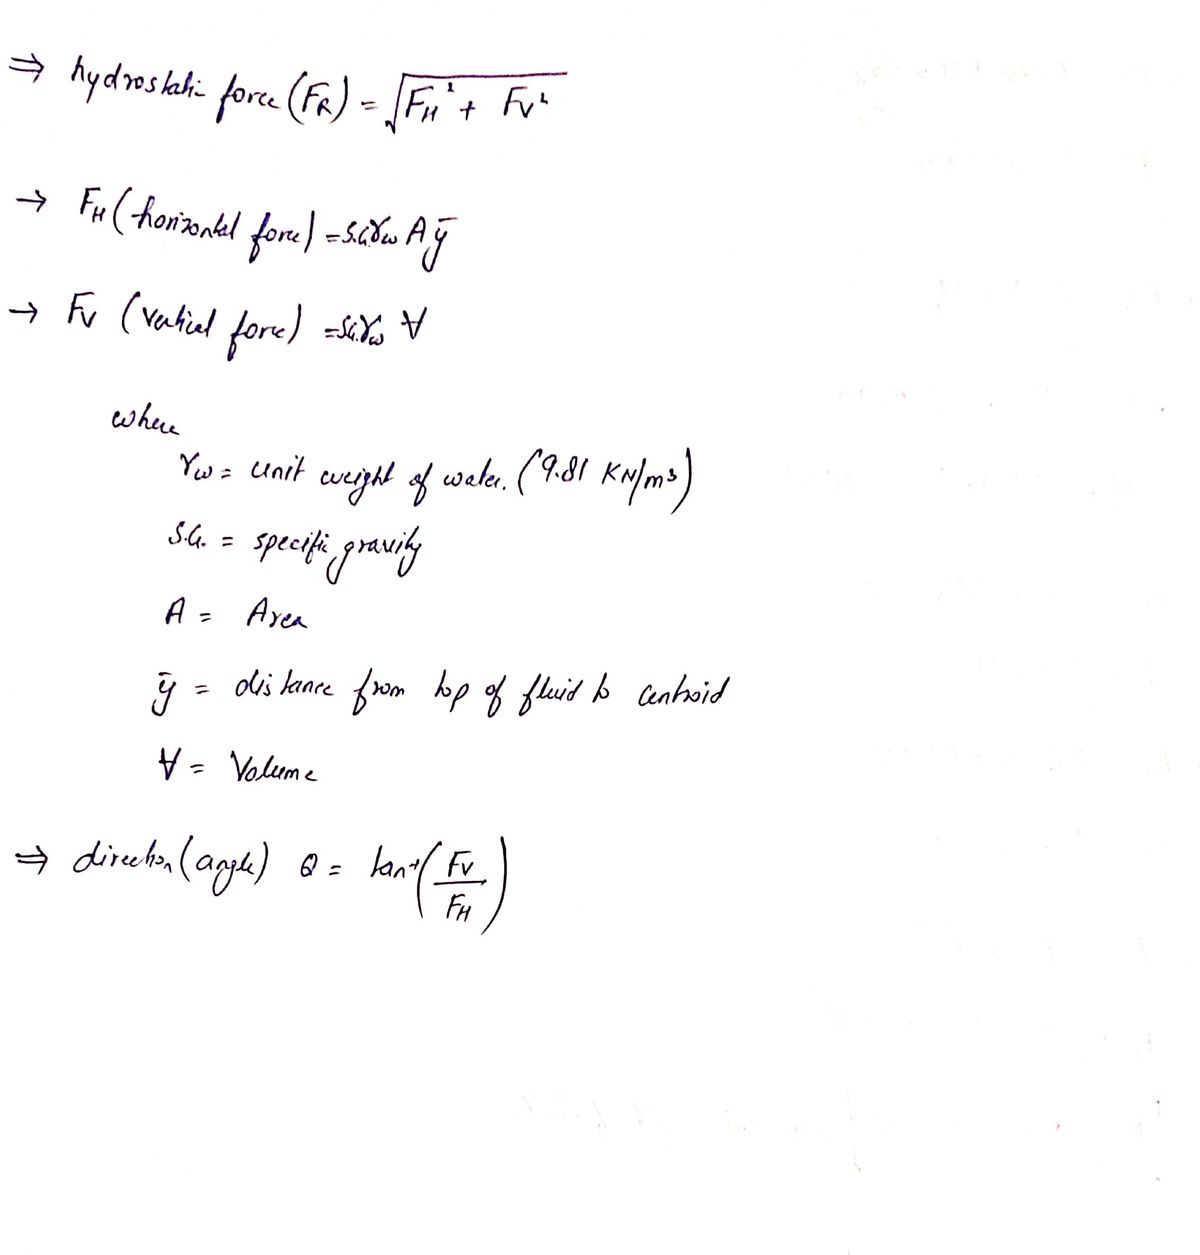 ⇒ hydrostatic force (FR) = √(FH² + FV²)
→ FH (horizontal force) = S.G.γw A ȳ
→ FV (vertical force) = S.G.γw ∀
where
γw = unit weight of water. (9.81 KN/m³)
S.G. = specific gravity
A = Area
ȳ = distance from top of fluid to centroid
∀ = Volume
⇒ direction (angle) θ = tan⁻¹(FV/FH)